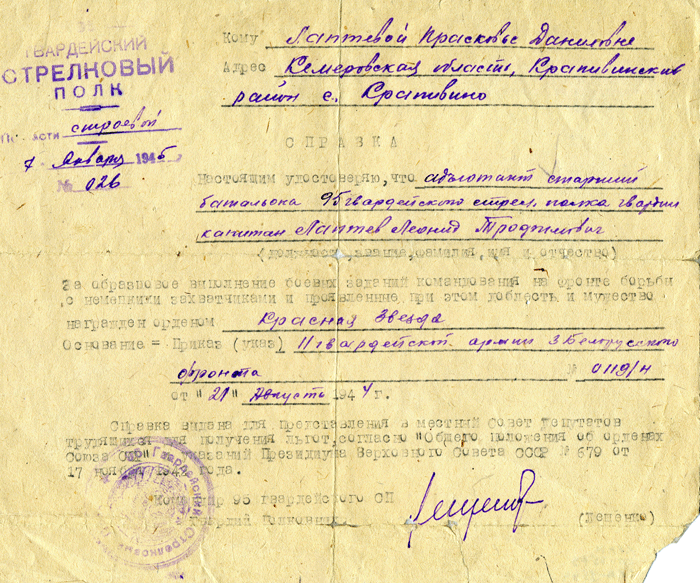 ГВАРДЕЙСКИЙ
СТРЕЛКОВЫЙ
ПОЛК
По части строевой
7 января 1945
№ 026
Кому Лаптевой Прасковье Даниловне
Адрес Кемеровская область, Крапивинский
район с. Крапивино
СПРАВКА
Настоящим удостоверяю, что адъютант старший
батальона 95 гвардейского стрел. полка гвардии
капитан Лаптев Леонид Трофимович
(должность, звание, фамилия, имя и отчество)
За образцовое выполнение боевых заданий командования на фронте борьбы
с немецкими захватчиками и проявленные при этом доблесть и мужество
награжден орденом Красная Звезда
Основание = Приказ (указ) 11 гвардейской армии 3 Белорусского
фронта № 0119/н
от "21" августа 1944 г.
Справка выдана для представления в местный Совет депутатов
трудящихся для получения льгот, согласно "Общего положения об орденах
Союза ССР" Президиума Верховного Совета СССР № 679 от
17 ноября года.
Командир 95 гвардейского СП
Гвардии Полковник (Лещенко)